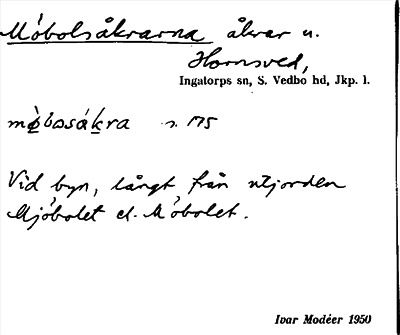 Móbolsåkrarna åkrar u.
Hornsved,
Ingatorps sn, S. Vedbo hd, Jkp. l.
s. 175
Vid byn, långt från utjorden
Mjóbolet el. Móbolet.
Ivar Modéer 1950